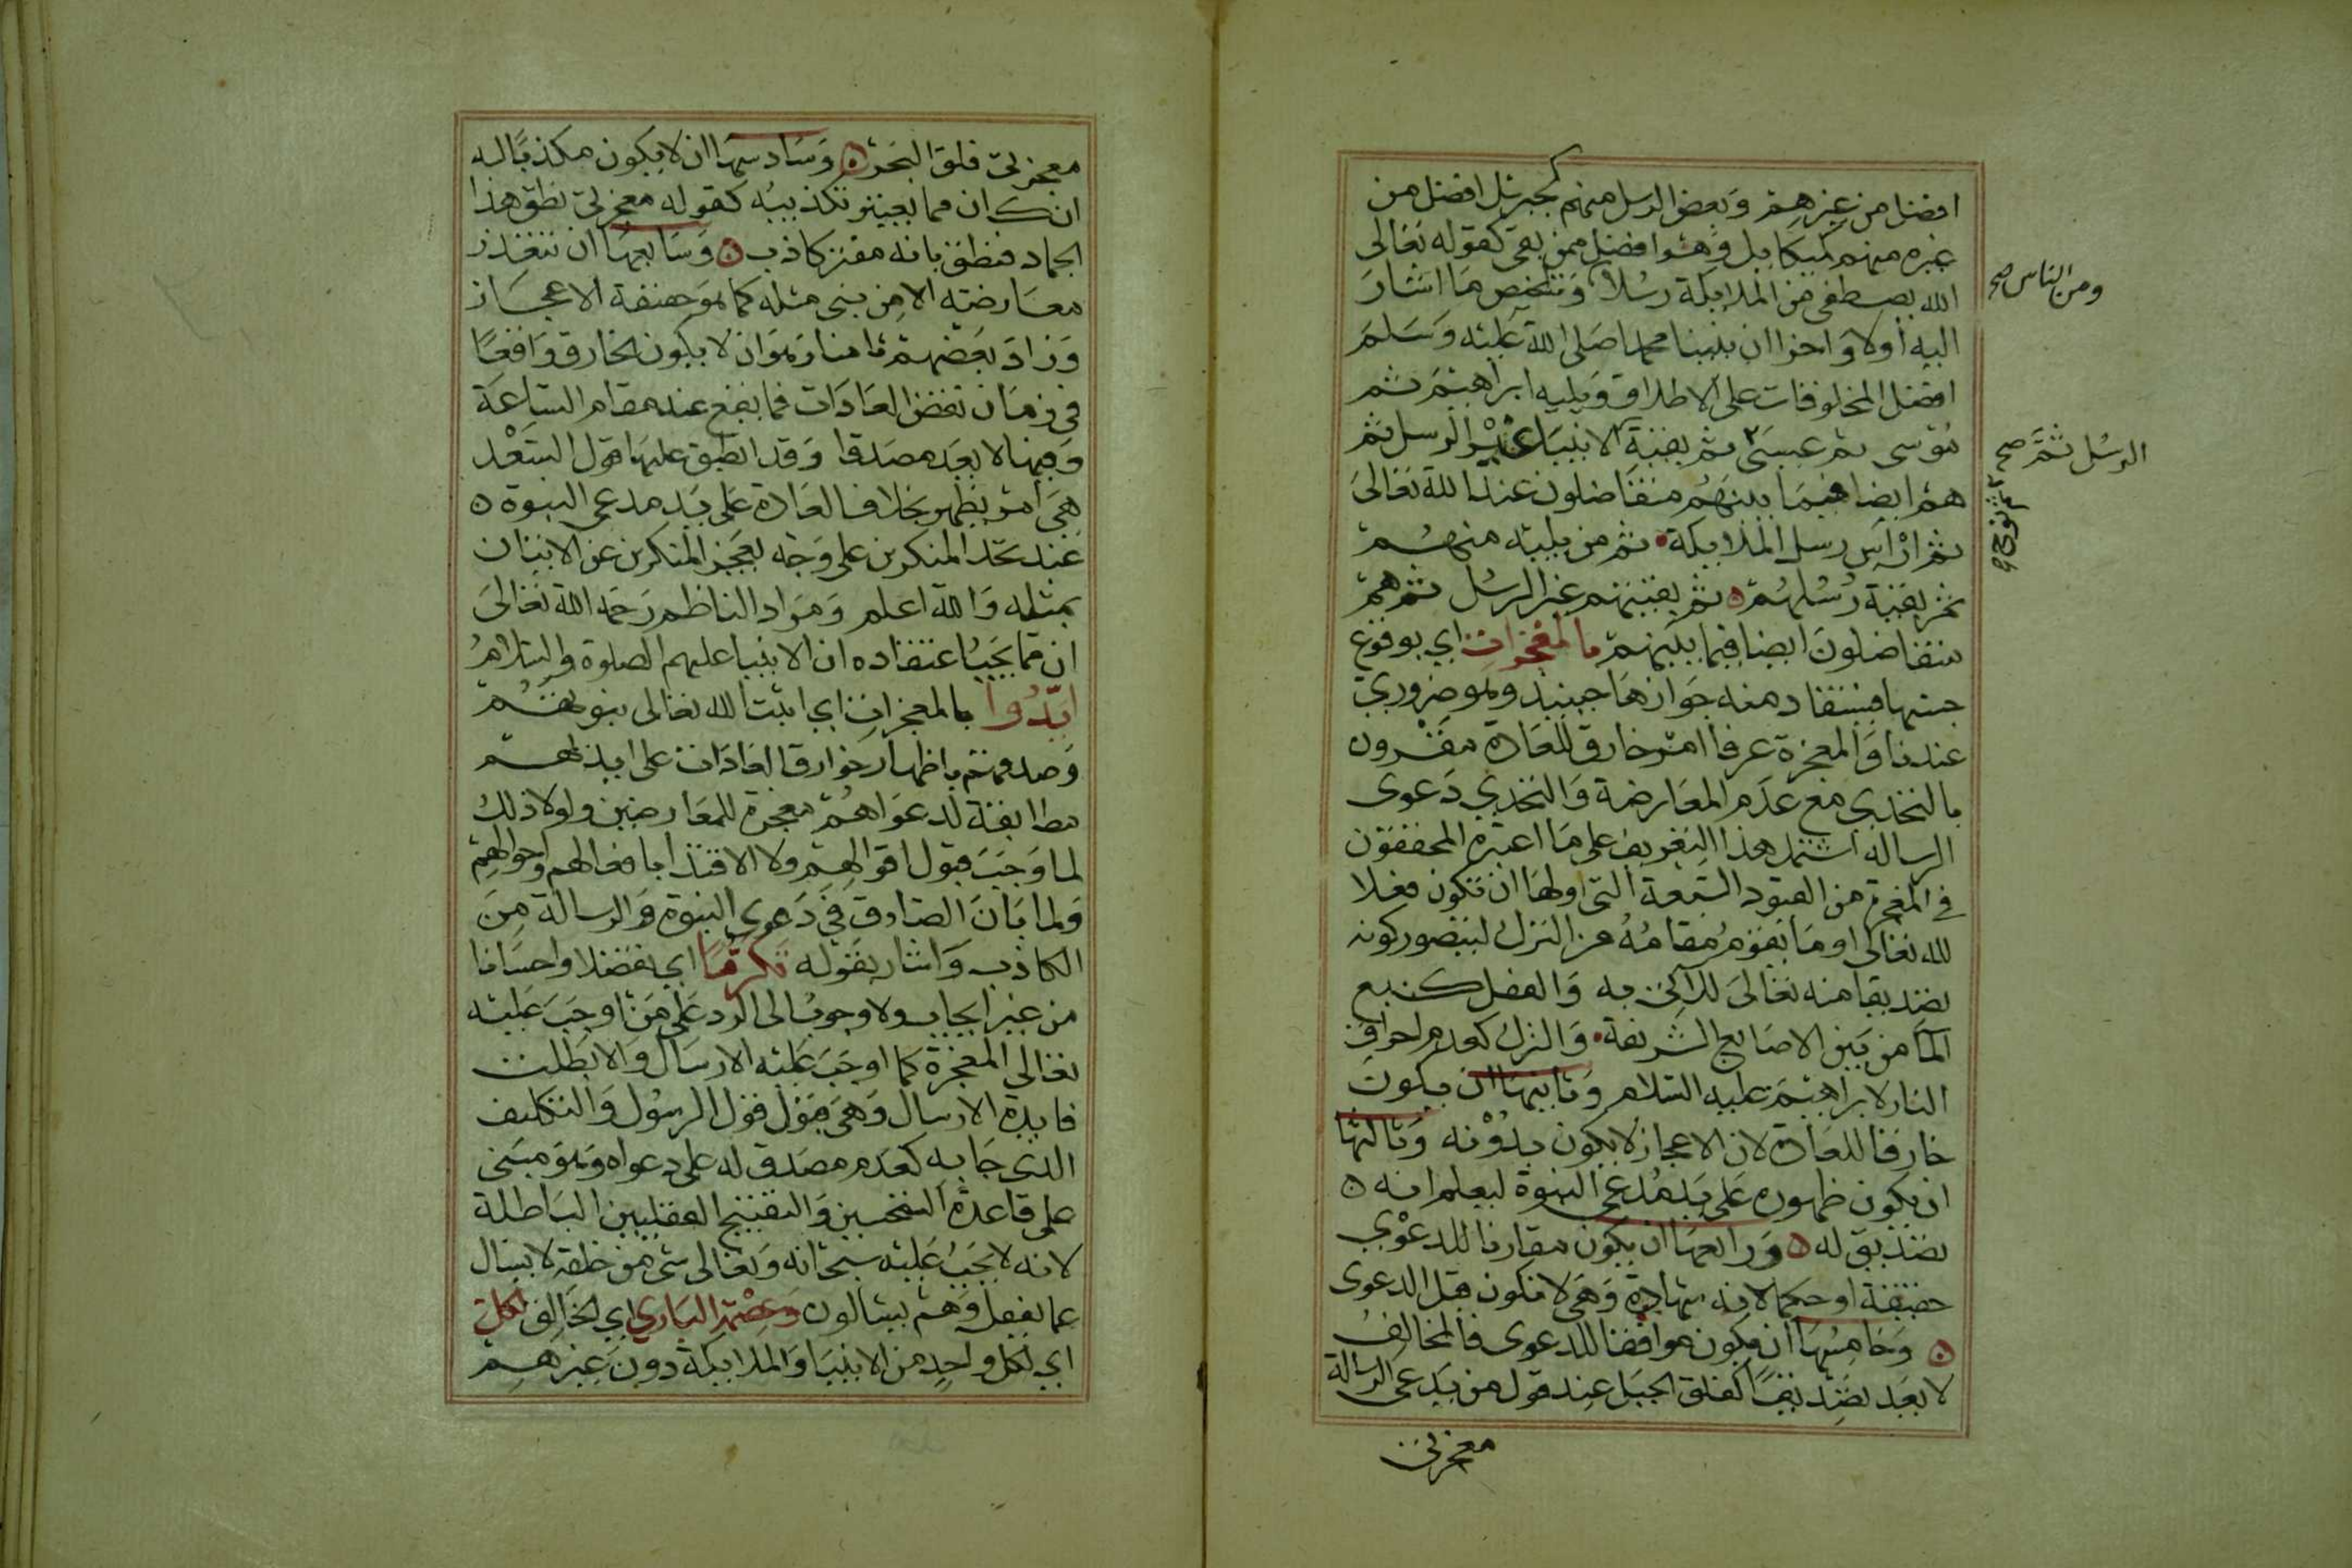 افضل من غيرهم وبعض الرسل منهم كجبريل افضل من
غيره منهم كميكاييل وهو افضل ممن بقى كقوله تعالى
الله يصطفى من الملايكة رسلا وتلخص مما اشار
ومن الناس صح
اليه اولا واخرا ان نبينا محمدا صلى الله عليه وسلم
افضل المخلوقات على الاطلاق ويليه ابراهيم ثم
موسى ثم عيسى ثم بقية الانبيا غير الرسل ثم
الرسل ثم صح
ثم نوح
هم ايضا فيما بينهم متفاضلون عند الله تعالى
ثم اراس رسل الملايكة ثم من يليه منهم
ثم بقية رسلهم ثم بقيتهم غير الرسل ثم هم
متفاضلون ايضا فيما بينهم بالمعجزات اي بوقوع
جنسها فيستفاد منه جوازها حينيذ وهو ضروري
عندنا والمعجزة عرفا امر خارق للعادة مقرون
بالتحدي مع عدم المعارضة والتحدي دعوى
الرسالة اشتمل هذا التعريف على ما اعتبره المحققون
في المعجزة من القيود السبعة التى اولها ان تكون فعلا
لله تعالى او ما يقوم مقامه من الترك ليتصور كونه
تصديقا منه تعالى للاتى به والفعل كنبع
الما من بين الاصابع الشريفة والترك كعدم احراق
النار لابراهيم عليه السلام وثانيها ان يكون
خارقا للعادة لان الاعجاز لا يكون بدونه وثالثها
ان يكون ظهوره على يد مدعى النبوة ليعلم انه
تصديق له ورابعها ان يكون مقارنا للدعوي
حقيقة او حكما لانه شهادة وهى لا تكون قبل الدعوى
وخامسها ان يكون موافقا للدعوى فالمخالف
لا يعد تصديقا كفلق الجبل عند قول من يدعى الرسالة
معجزتى
معجزتى فلق البحر وسادسها ان لا يكون مكذبا له
ان كان مما يعتبر تكذيبه كقوله معجزتى نطق هذا
الجماد فنطق بانه مفتر كاذب وسابعها ان تتعذر
معارضته الا من نبى مثله كما هو حقيقة الاعجاز
وزاد بعضهم ثامنا وهو ان لا يكون الخارق واقعا
فى زمان نقض العادات فما يقع عند مقام الساعة
وفيها لا يعد مصدقا وقد انطبق عليها قول السعد
هى امر يظهر بخلاف العادة على يد مدعى النبوة
عند تحد المنكرين على وجه يعجز المنكرين عن الاتيان
بمثله والله اعلم ومراد الناظم رحمه الله تعالى
ان مما يجب اعتقاده ان الانبيا عليهم الصلوة والسلام
ايدوا بالمعجزات اي اثبت الله تعالى نبوتهم
وصدقهم باظهار خوارق العادات على ايديهم
مطابقة لدعواهم معجزة للمعارضين ولولا ذلك
لما وجب قبول اقوالهم ولا الاقتدا بافعالهم واحوالهم
ولما بان الصادق فى دعوى النبوة والرسالة من
الكاذب واشار بقوله تكرما اي تفضلا واحسانا
من غير ايجاب ولا وجوب الى الرد على من اوجب عليه
تعالى المعجزة كما اوجب عليه الارسال والا بطلت
فايدة الارسال وهى قبول قول الرسول والتكليف
الذى جا به لعدم مصدق له على دعواه وهو مبنى
على قاعدة التحسين والتقبيح العقليين الباطلة
لانه لا يجب عليه سبحانه وتعالى شى من خلقه لا يسال
عما يفعل وهم يسالون وعصمة الباري اي الخالق لكل
اي لكل واحد من الانبيا والملايكة دون غيرهم